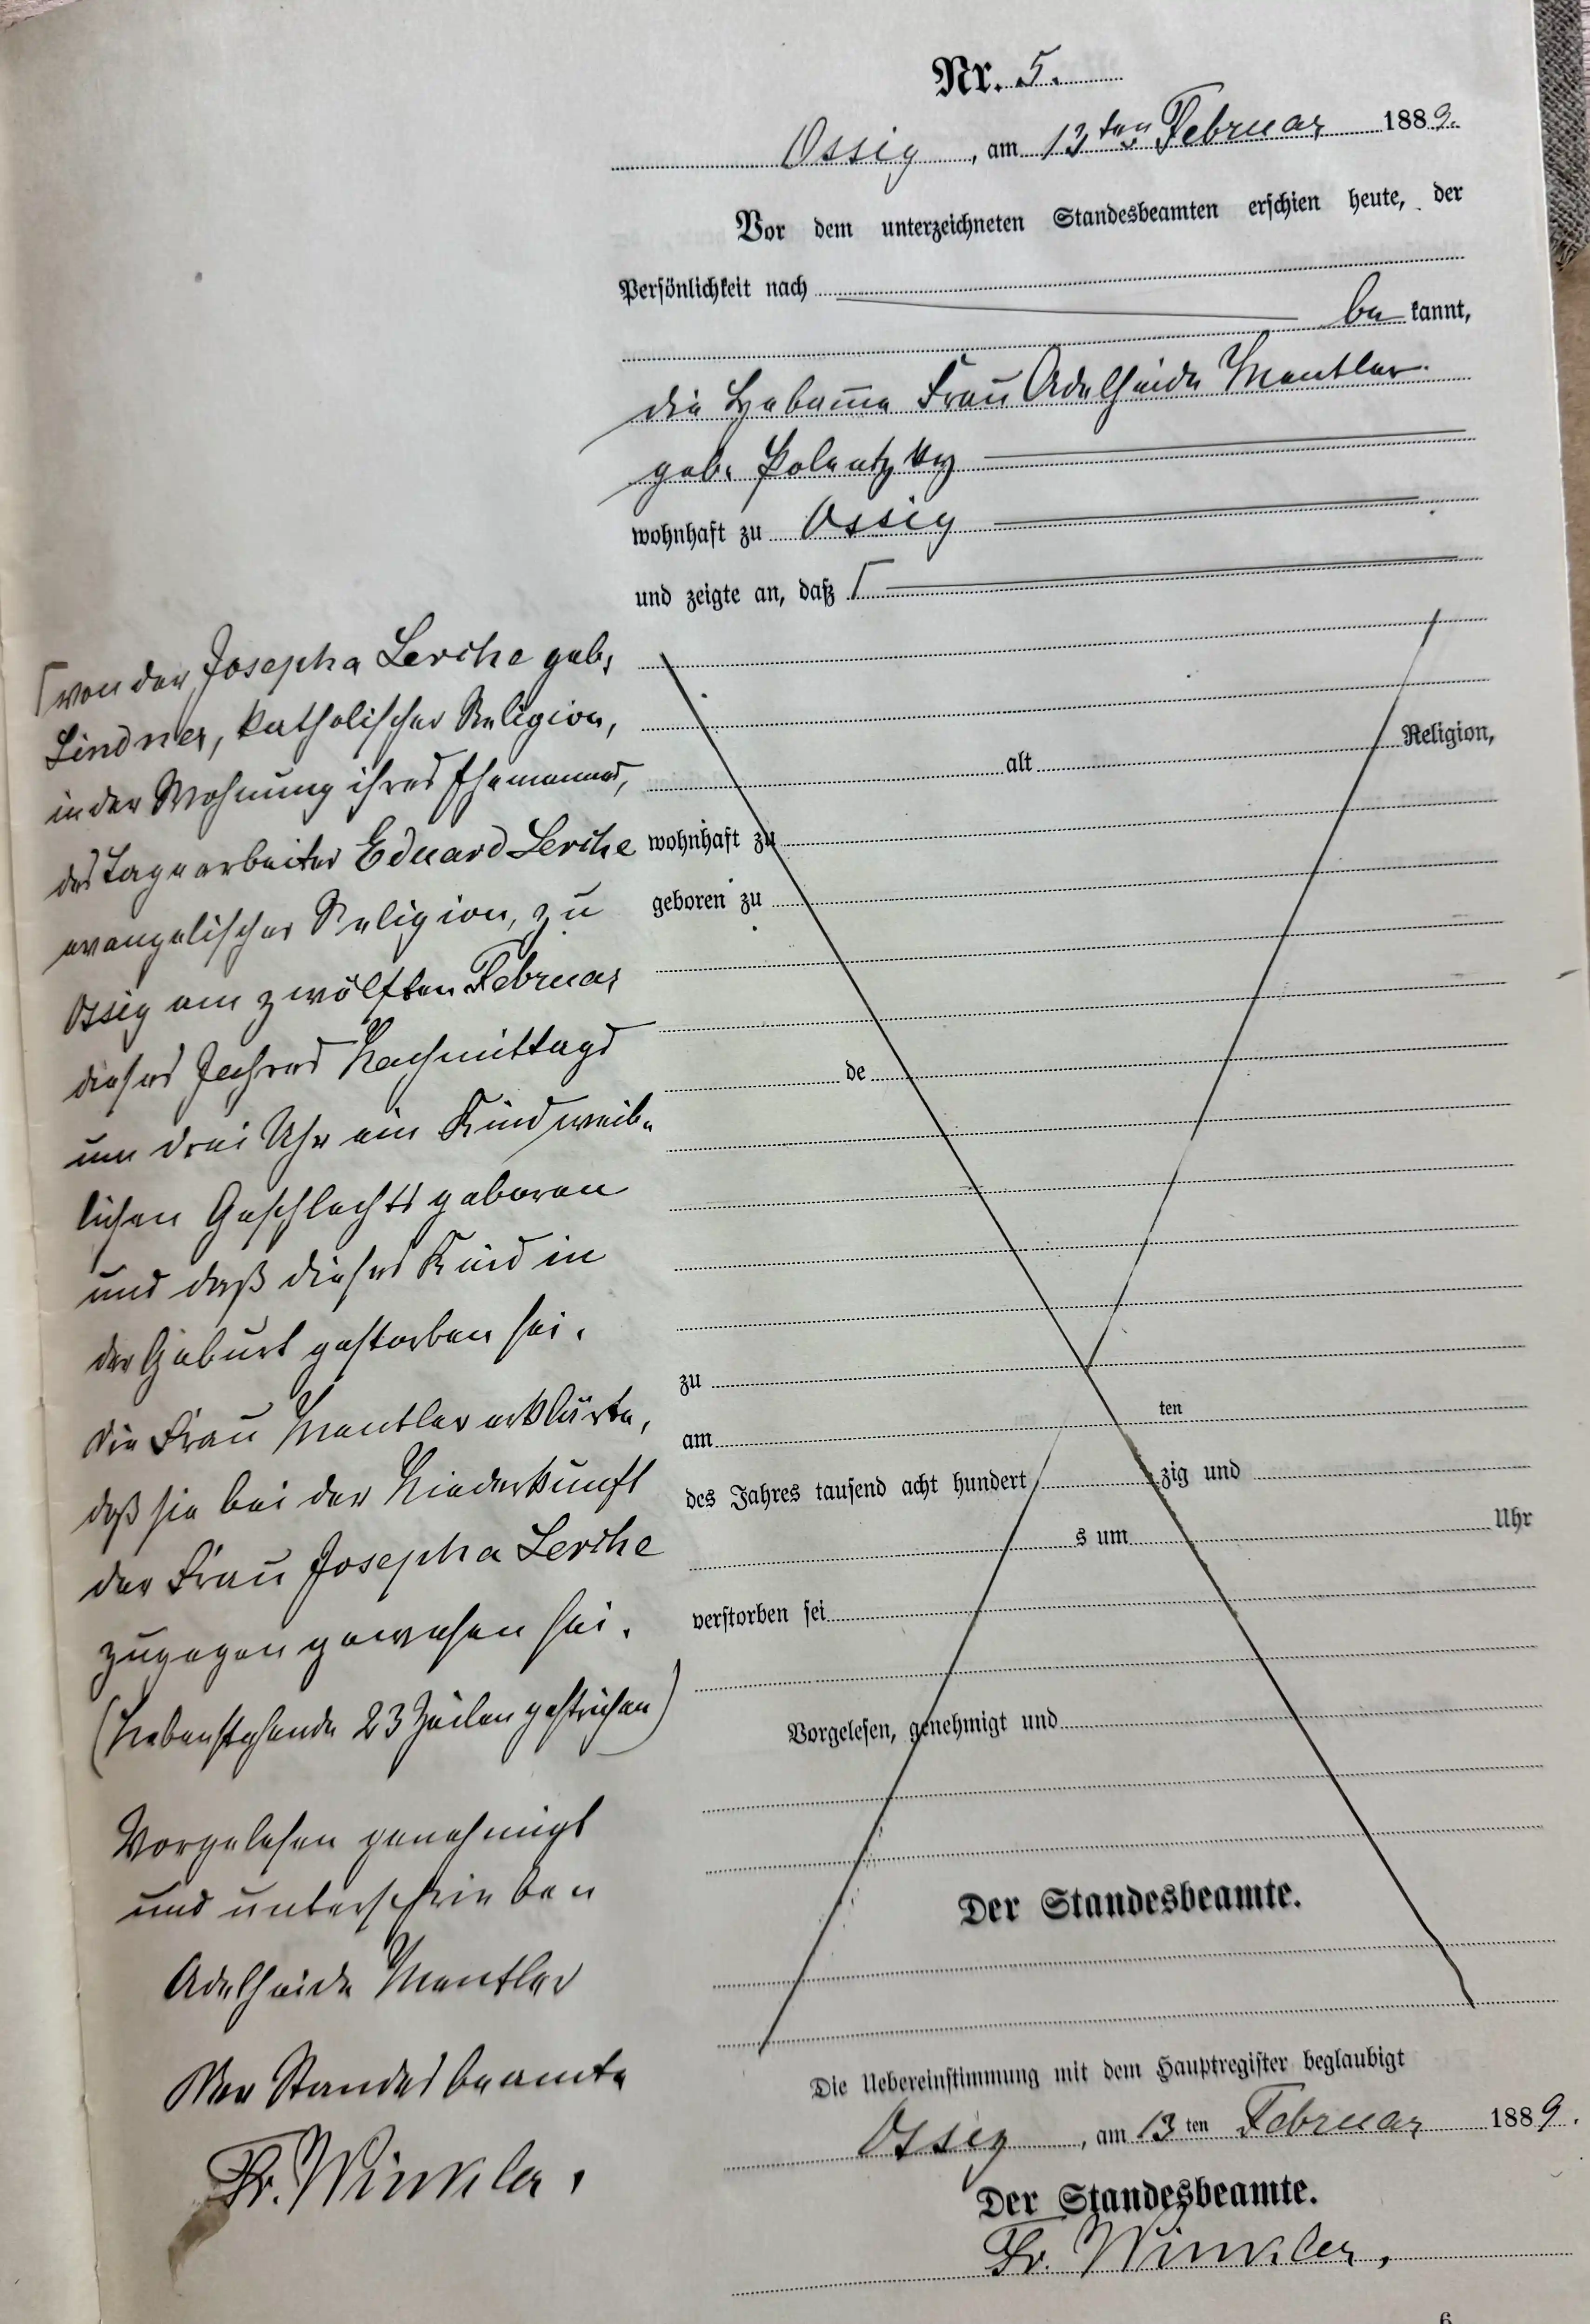 Nr. 5.
Ossig, am 13ten Februar 1889.
Vor dem unterzeichneten Standesbeamten erschien heute, der
Persönlichkeit nach
be kannt,
die Hebamme Frau Adelheide Mentler
geb. Polentzky
wohnhaft zu Ossig
und zeigte an, daß Γ
Γ von der Josepha Lerche geb.
Lindner, katholischer Religion,
in der Wohnung ihres Ehemannes,
des Tagearbeiter Eduard Lerche
evangelischer Religion, zu
Ossig am zwölften Februar
dieses Jahres Nachmittags
um drei Uhr ein Kind weib-
lichen Geschlechts geboren
und daß dieses Kind in
der Geburt gestorben sei.
Die Frau Mentler erklärte,
daß sie bei der Niederkunft
der Frau Josepha Lerche
zugegen gewesen sei.
(Nebenstehende 23 Zeilen gestrichen)
Vorgelesen genehmigt
und unterschrieben
Adelheide Mentler
Der Standesbeamte
Fr. Winkler.
alt Religion,
wohnhaft zu
geboren zu
de
zu
am ten
des Jahres tausend acht hundert zig und
s um Uhr
verstorben sei
Vorgelesen, genehmigt und
Der Standesbeamte.
Die Uebereinstimmung mit dem Hauptregister beglaubigt
Ossig, am 13 ten Februar 1889.
Der Standesbeamte.
Fr. Winkler.